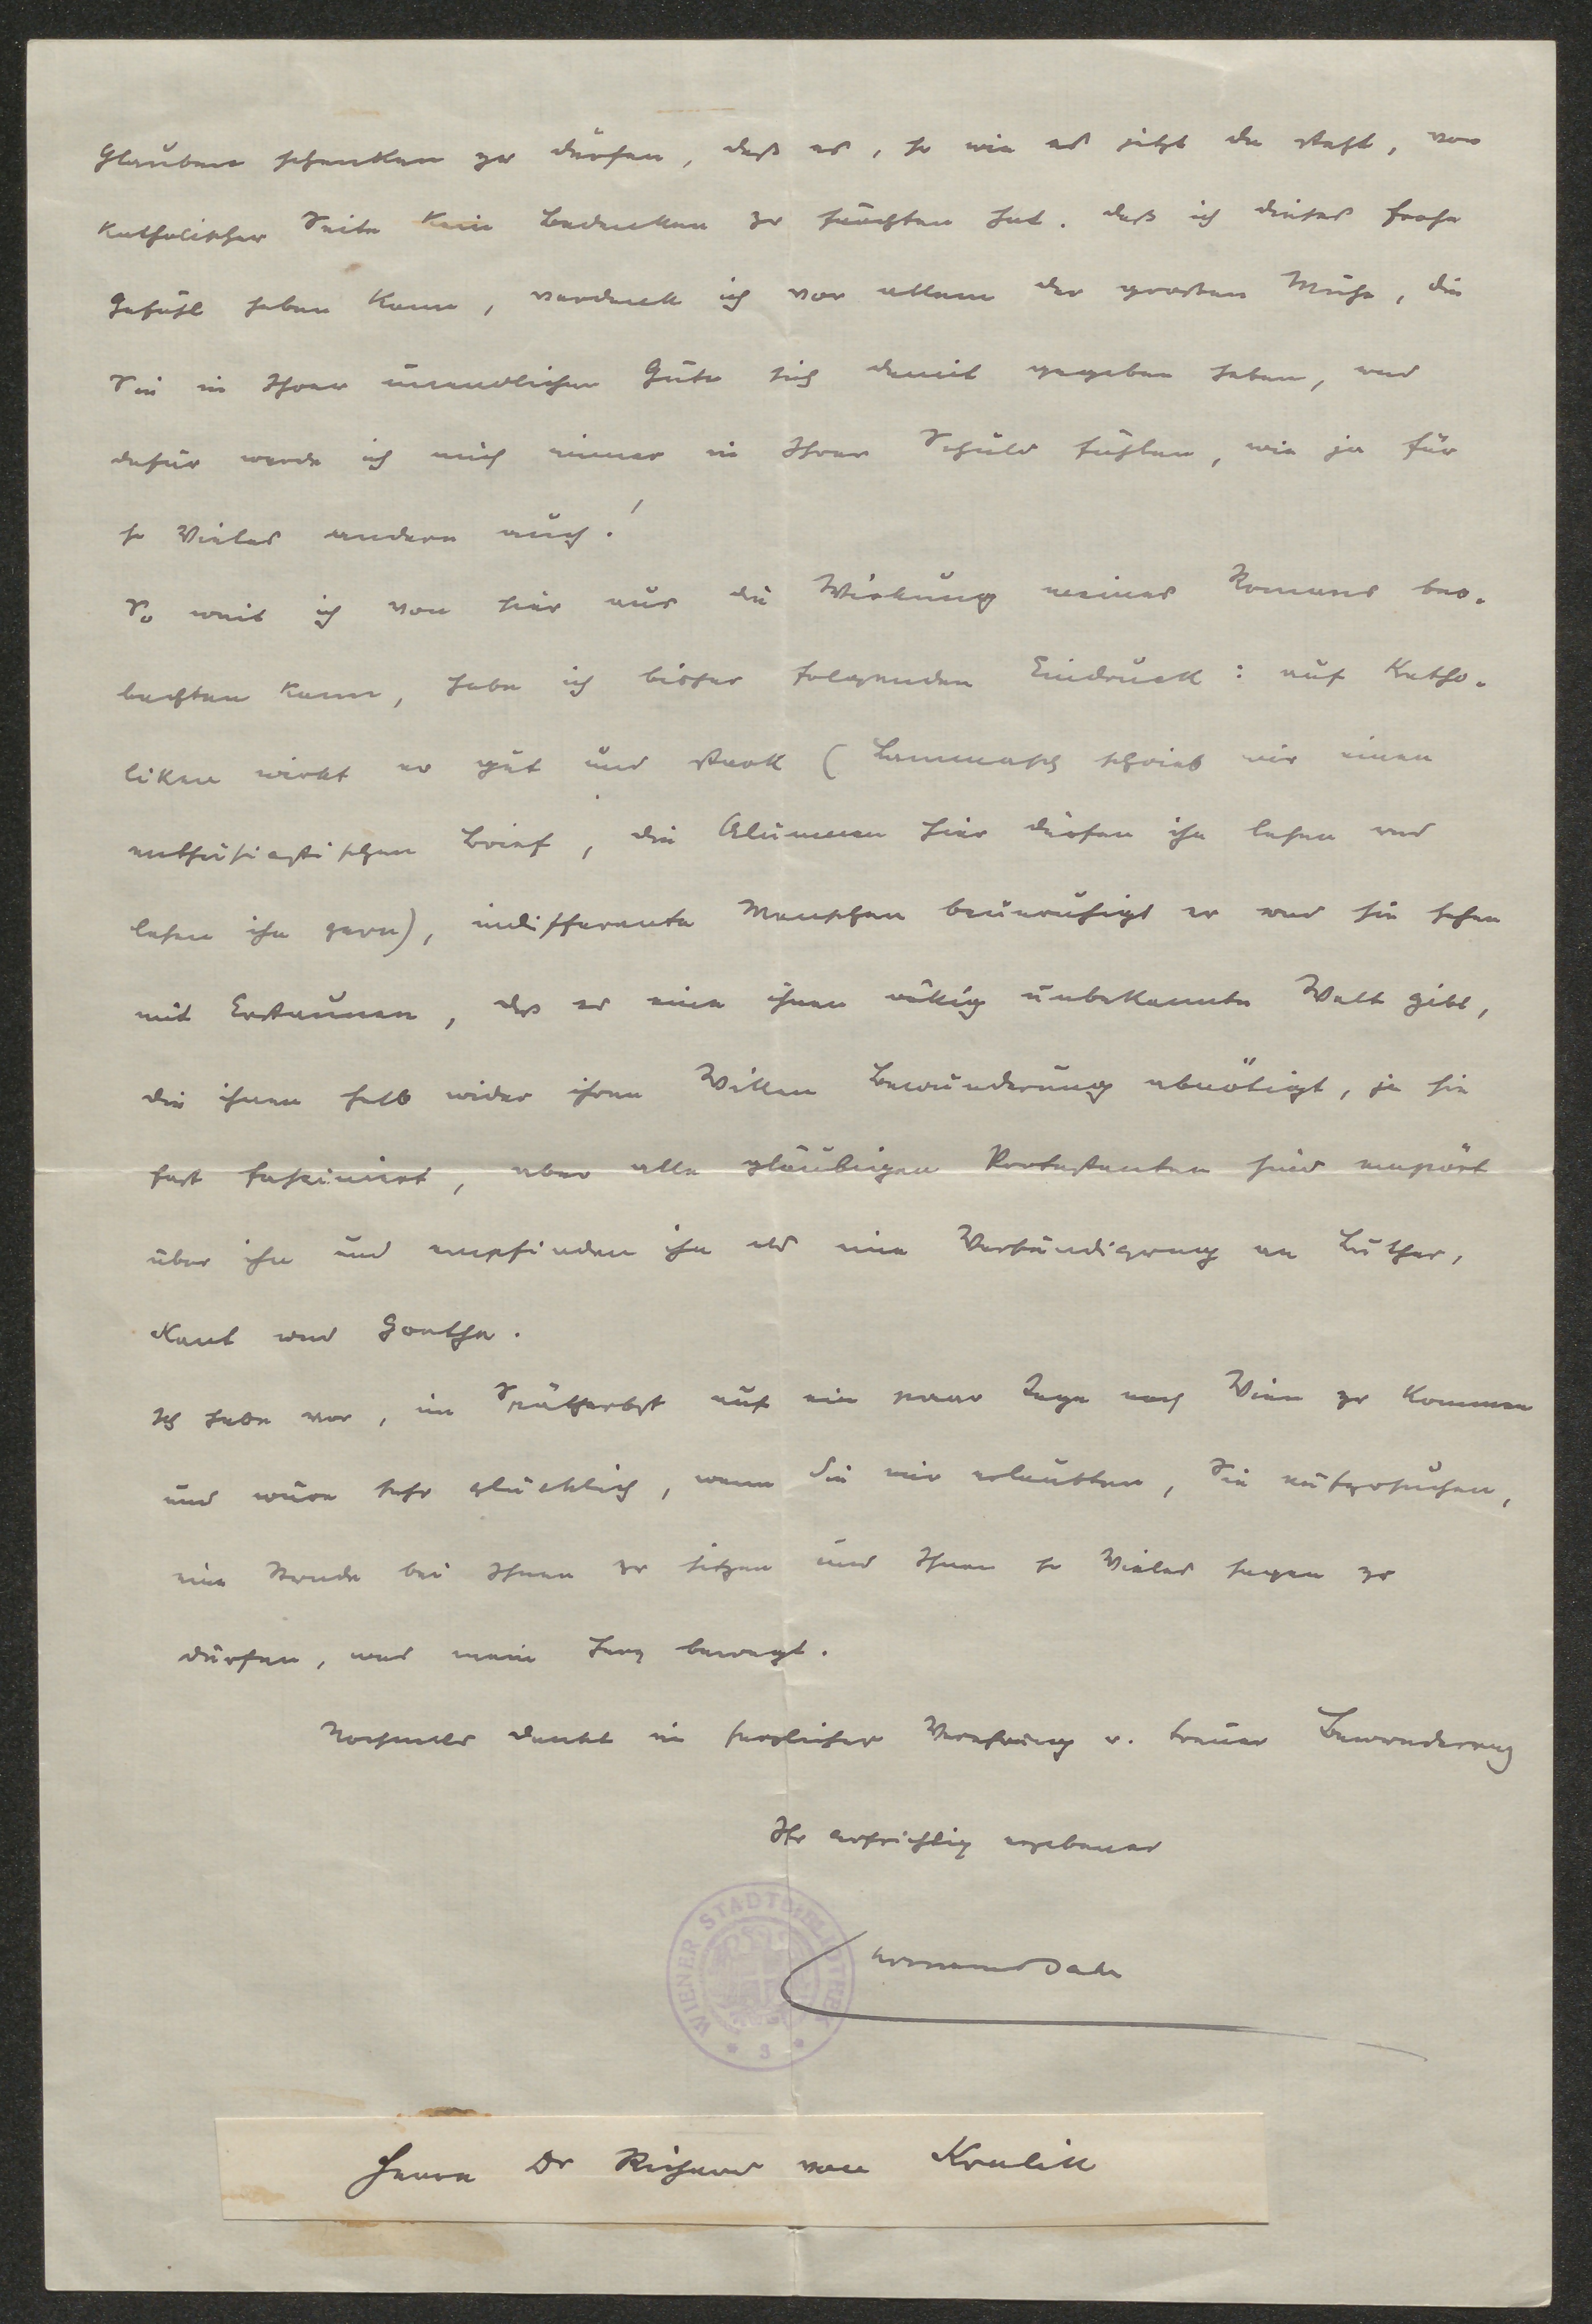 Glauben schenken zu dürfen, daß es, so wie es jetzt da steht, von
katholischer Seite kein Bedenken zu fürchten hat. Daß ich dieses frohe
Gefühl haben kann, verdank ich vor allem der grossen Mühe, die
Sie in Ihrer unendlichen Güte sich damit gegeben haben, und
dafür werde ich mich immer in Ihrer Schuld fühlen, wie ja für
so Vieles andere auch!
So weit ich von hier aus die Wirkung meines Romans beo-
bachten kann, habe ich bisher folgenden Eindruck: auf Katho-
liken wirkt er gut und stark (Lammasch schrieb mir einen
enthusiastischen Brief, die Alumnen hier dürfen ihn lesen und
lesen ihn gern), indifferente Menschen beunruhigt er und sie sehen
mit Erstaunen, daß es eine ihnen völlig unbekannte Welt gibt,
die ihnen halb wider ihren Willen Bewunderung abnötigt, ja sie
fast fasziniert, aber alle gläubigen Protestanten sind empört
über ihn und empfinden ihn als eine Versündigung an Luther,
Kant und Goethe.
Ich habe vor, im Spätherbst auf ein paar Tage nach Wien zu kommen
und wäre sehr glücklich, wenn Sie mir erlaubten, Sie aufzusuchen,
eine Stunde bei Ihnen zu sitzen und Ihnen so Vieles sagen zu
dürfen, was mein Herz bewegt.
Nochmals dankt in herzlicher Verehrung u. treuer Bewunderung
Ihr aufrichtig ergebener
HermannBahr
WIENER STADTBIBLIOTHEK
* 3 *
Herrn Dr Richard von Kralik